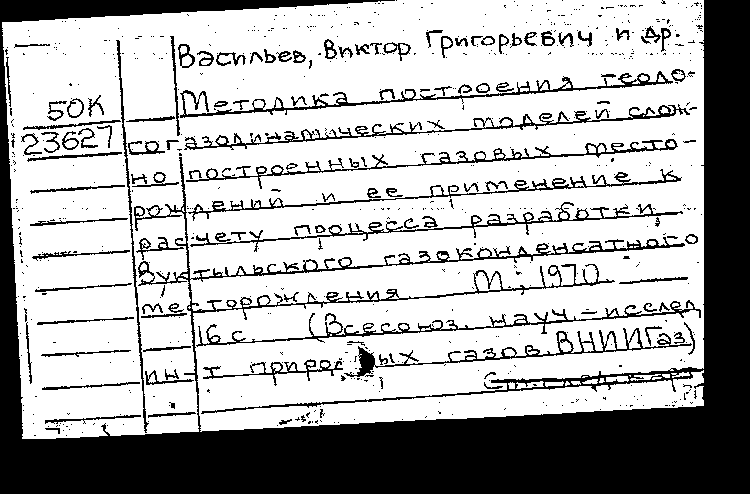 Васильев, Виктор Григорьевич и др.
50К
Методика построения геоло-
23627
согазодинамических моделей слож-
но построенных газовых место-
рождений и ее применение к
расчету процесса разработки
Вуктыльского газоконденсатного
месторождения М., 1970
16 с. (Всесоюз. науч.-исслед
ин-т природных газов. ВНИИГаз)
См. след. карт